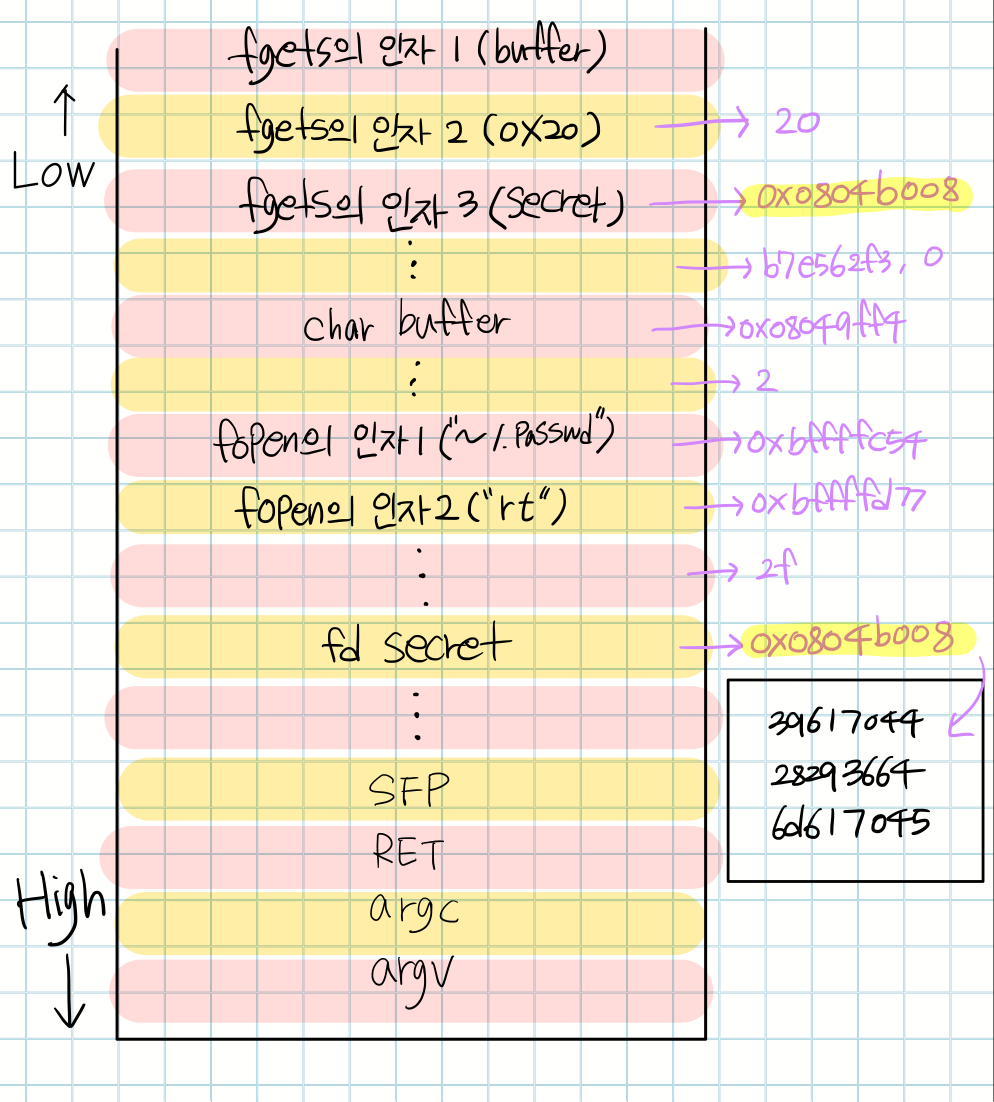 fgets의 인자 1 (buffer)
↑
Low
fgets의 인자 2 (0X20) → 20
fgets의 인자 3 (secret) → 0x0804b008
⋮ → b7e562f3, 0
char buffer → 0x08049ff4
⋮ → 2
fopen의 인자 1 ("~/.Passwd") → 0xbffffc54
fopen의 인자 2 ("rt") → 0xbffffd77
⋮ → 2f
fd secret → 0x0804b008
⋮
39617044
28293664
6d617045
SFP
RET
High
↓
argc
argv